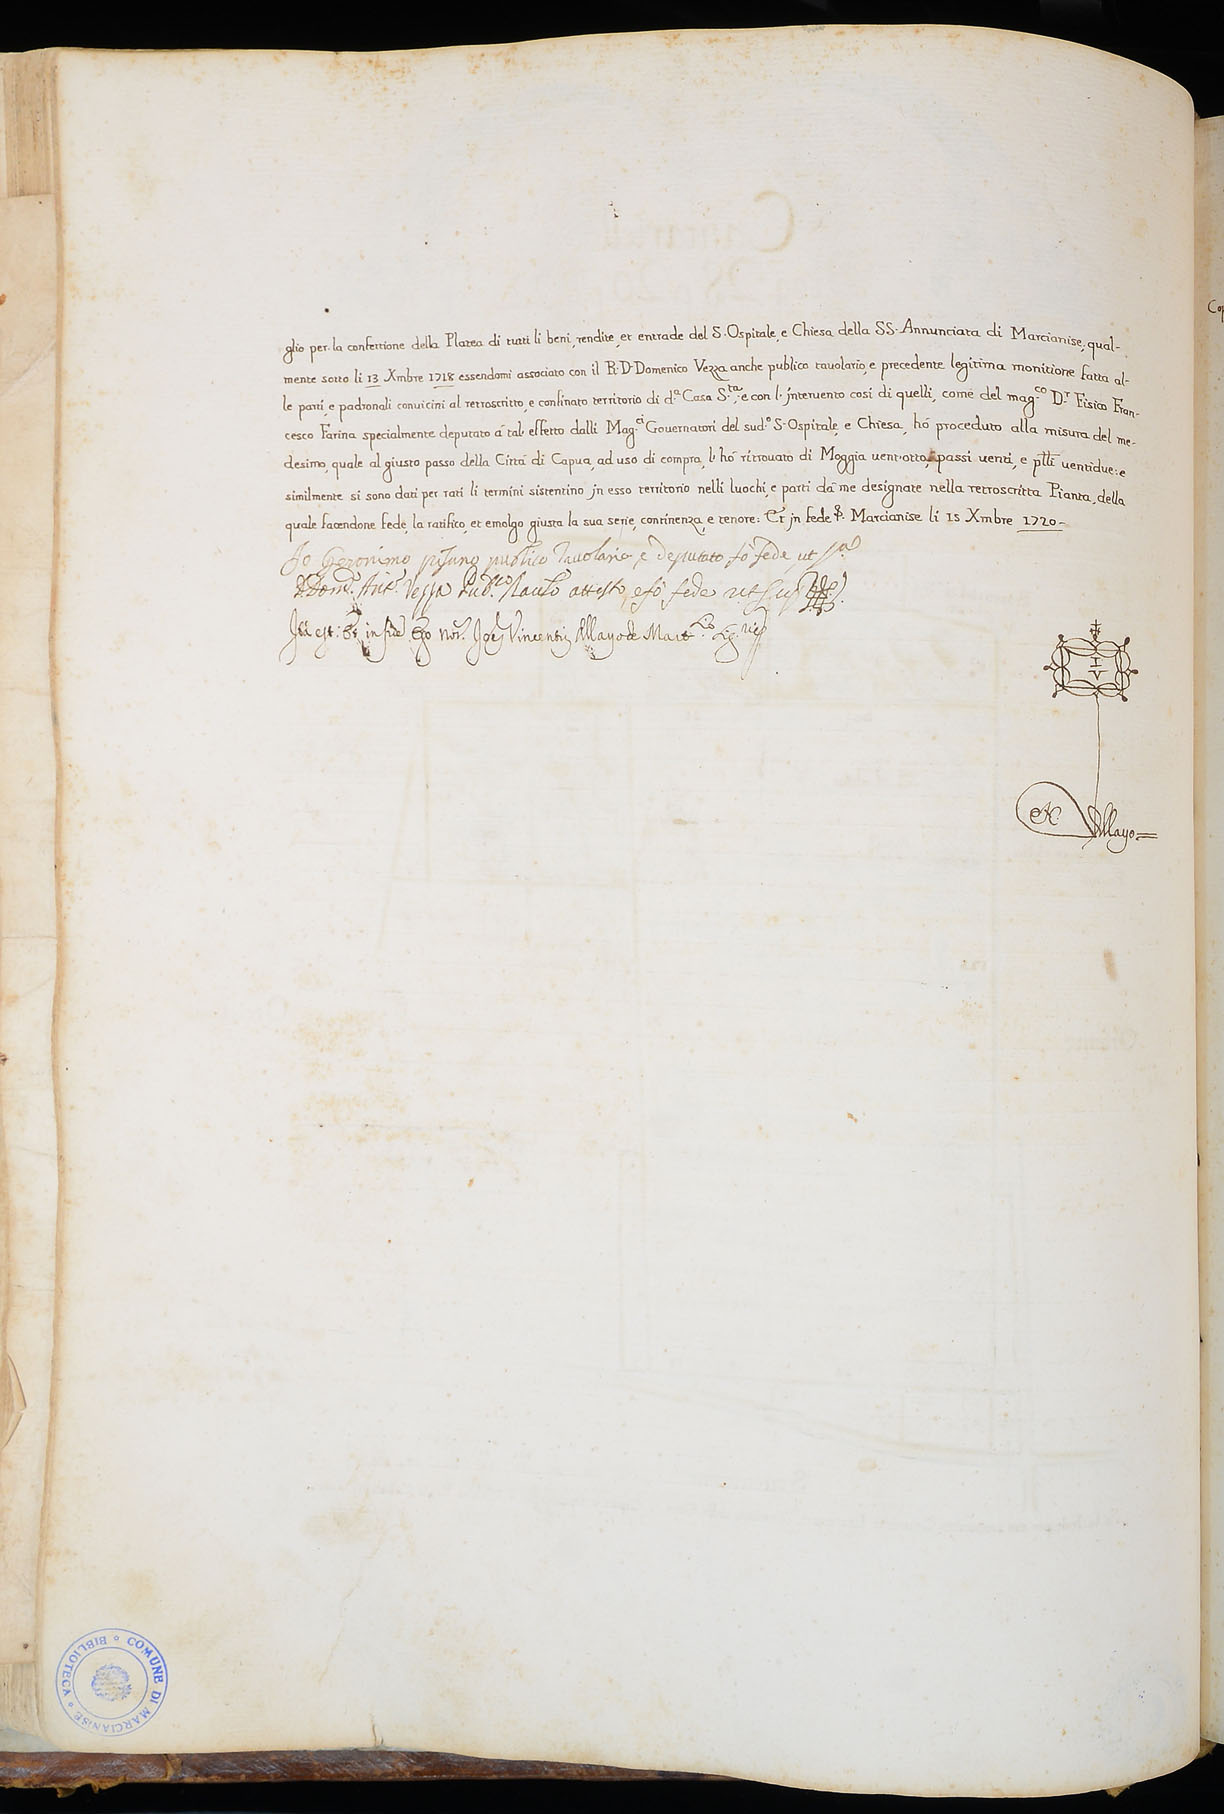 glio per la confettione della Platea di tutti li beni, rendite, et entrade del S. Ospitale, e Chiesa della SS. Annunciata di Marcianise, qual-
mente sotto li 13 Xmbre 1718 essendomi associato con il R. D. Domenico Vezza anche publico tauolario, e precedente legitima monitione fatta al-
le parti, e padronali conuicini al retroscritto, e confinato territorio di d.ª Casa S.ta, e con l'interuento cosi di quelli, come del mag.co D.r Fisico Fran-
cesco Farina specialmente deputato à tal' effetto dalli Mag.ci Gouernatori del sud.º S. Ospitale, e Chiesa, hò proceduto alla misura del me-
desimo, quale al giusto passo della Città di Capua, ad uso di compra, l'hò ritrouato di Moggia uent'otto, passi uenti, e p̃tti uentidue: e
similmente si sono dati per rati li termini sistentino in esso territorio nelli luochi, e parti da me designate nella retroscritta Pianta, della
quale facendone fede, la ratifico, et emolgo giusta la sua serie, continenza, e tenore: Et in fede &. Marcianise li 15 Xmbre 1720-
Io Geronimo publico Tauolario, e deputato fò fede ut s.ª
D. Dom.co Ant.º Vessa Pub.co Taul.º attesto, e fò fede ut sup.
Ita est: Et in fid. Ego Not.
I
V
N. Allayo
Cop
COMUNE DI MARCIANISE * BIBLIOTECA *